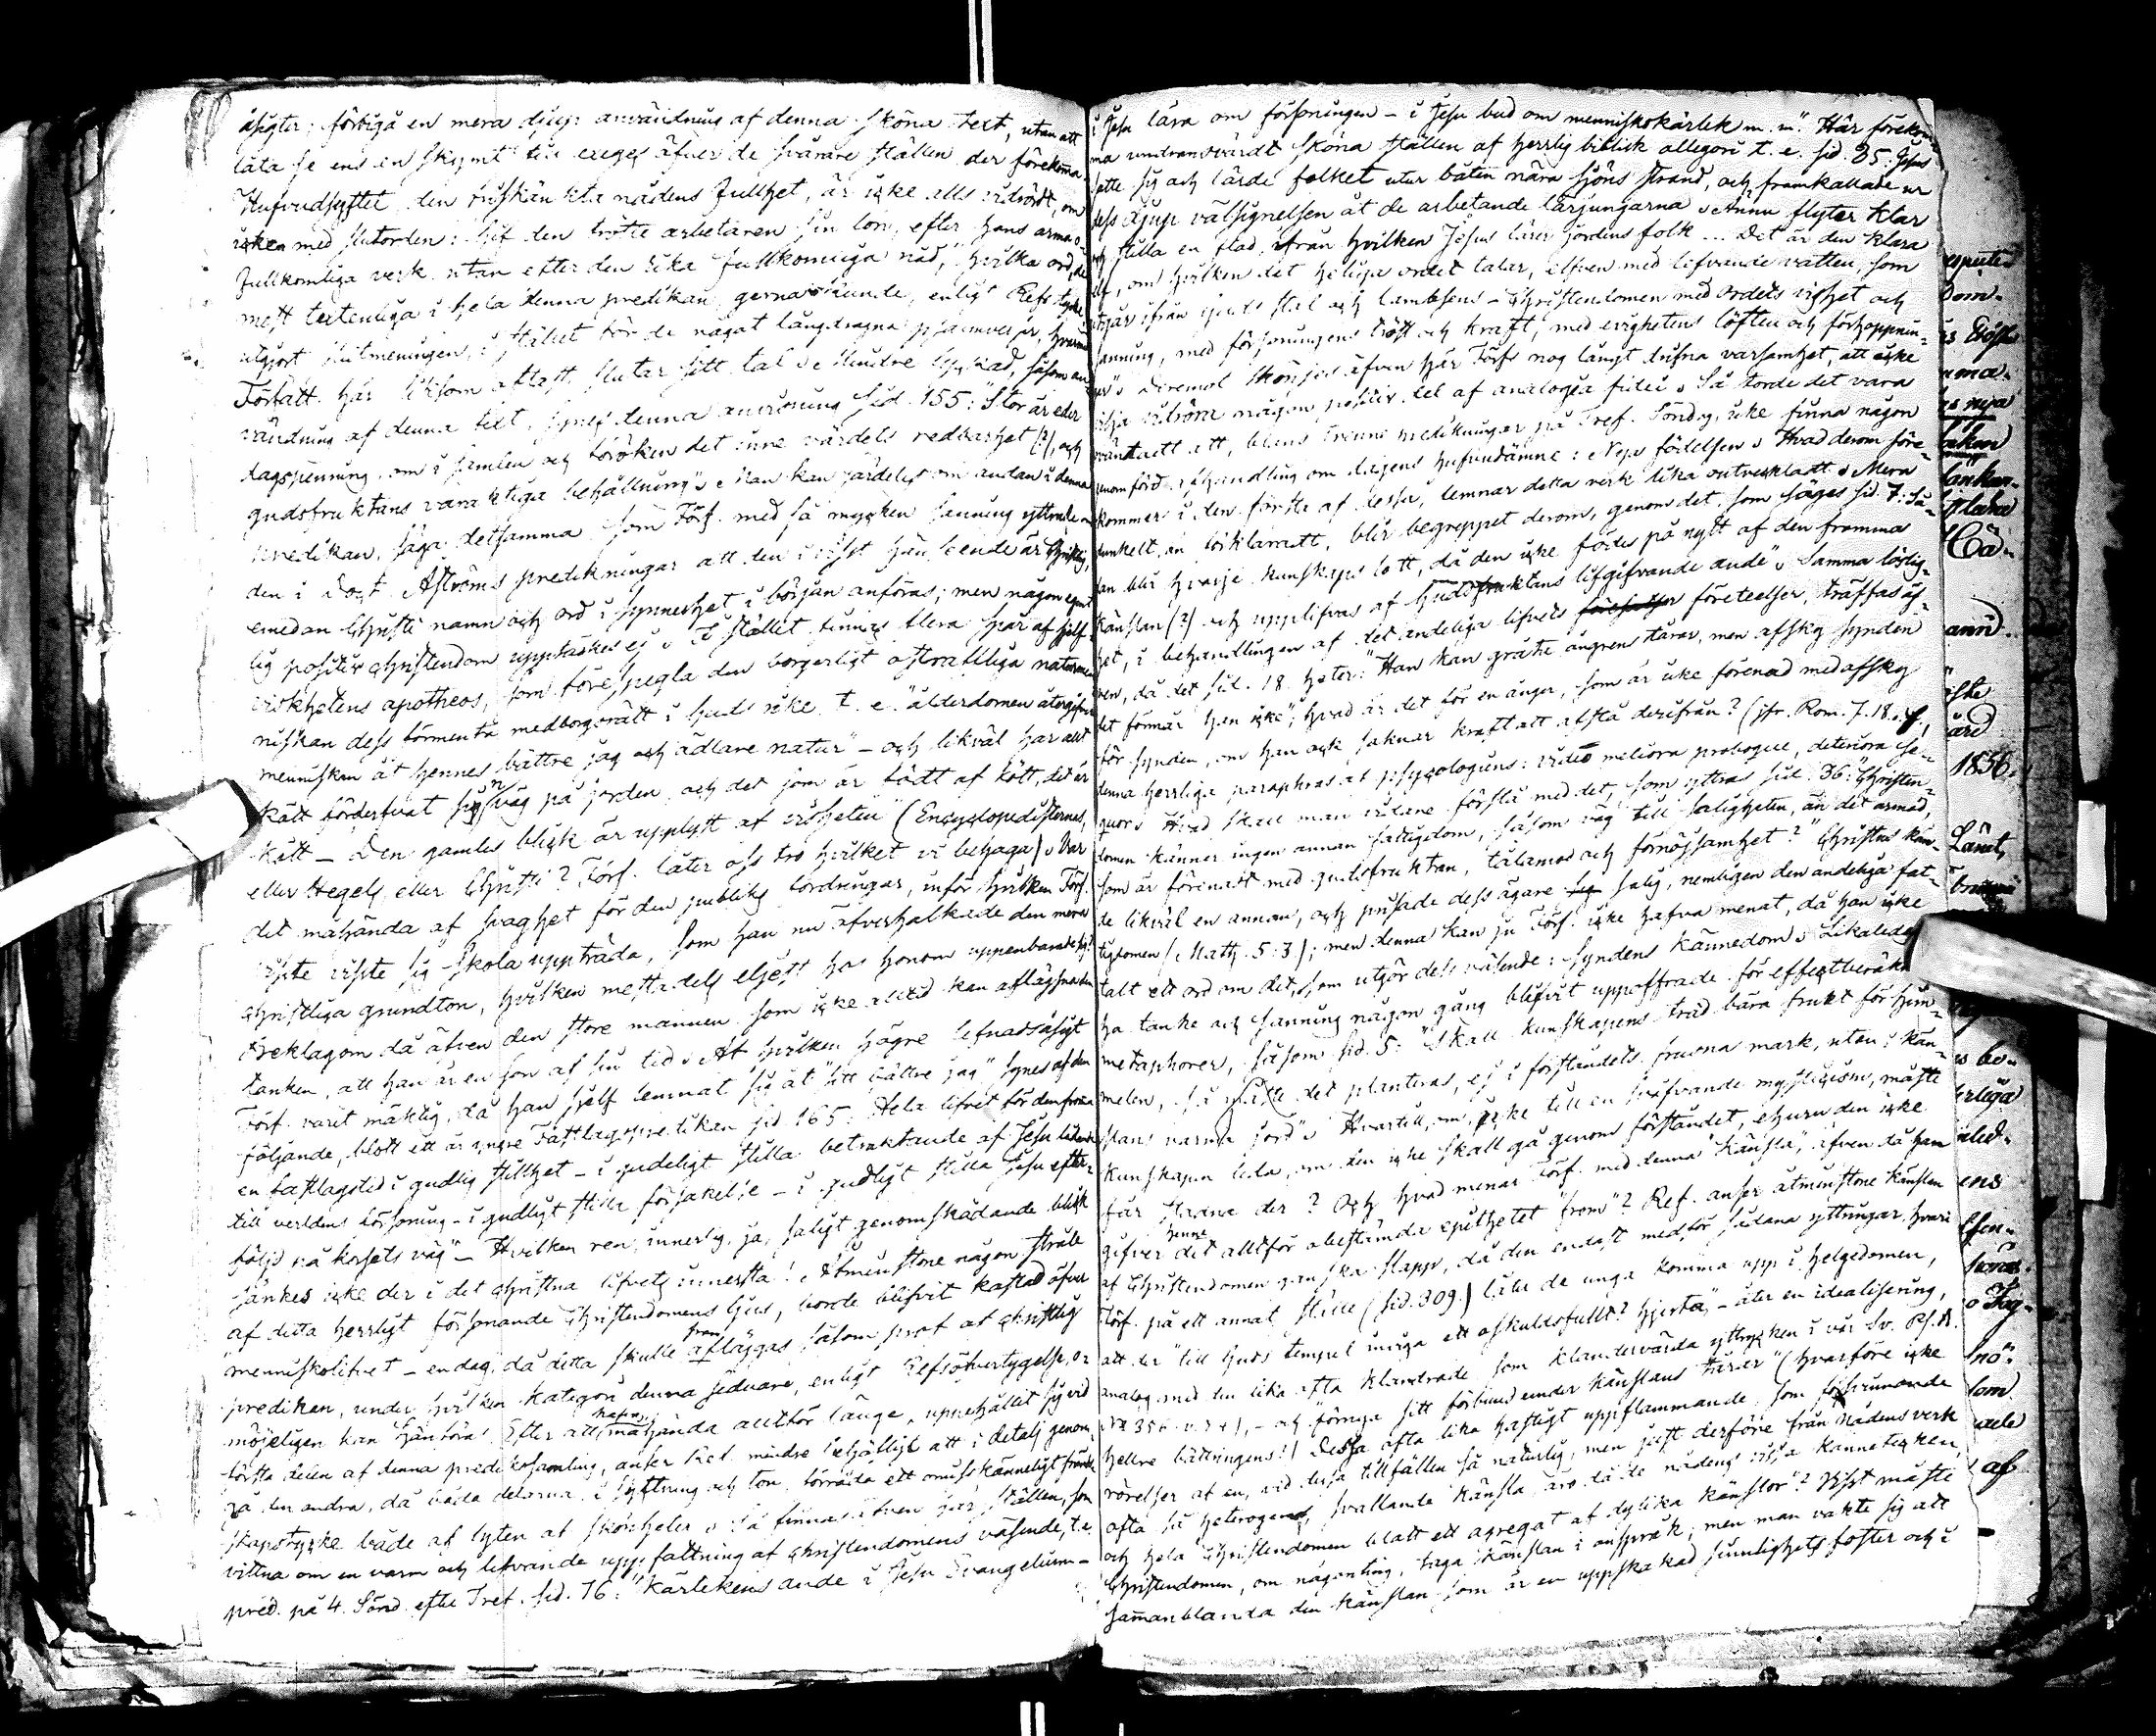 åsigter: förbigå en mera djup användning af denna sköna text, utan att
låta se ens en skymt till exeges äfven de svårare ställen der förekomma.
Hufvudsyftet, den oinskränkta nådens fullhet, är icke alls vidrördt, om
icken med slutorden: Gif den trötte arbetaren sin lön, efter hans arma o-
fullkomliga verk utan efter den rika fullkomliga nåd," hvilka ord, de
mest textenliga i hela denna predikan gerna kunde, enligt Refs tycke
utgjort slutmeningen, i stället för de något långdragna psalmverser, hvarmed
Författ. här liksom oftast slutar sitt tal. Mindre lyckad, såsom an-
vändning af denna text, synes denna anvisning sid. 155: "Stor är eder
dagspenning, om i samlen och försöken det inre värdets redbarhet (?), och
gudsfruktans varaktiga behållning". Man kan särdeles om andan i denna
predikan, säga detsamma som Förf. med så mycken sanning yttrade om
den i Doct. Afströms predikningar att den i visst hänseende är Christlig,
emedan Christi namn och ord i synnerhet i början anföras; men någon egent-
lig positiv Christendom upptäckes ej. I stället finnas flera spår af sjelf-
viskhetens apotheos, som förespegla den borgerligt ostraffliga naturmen-
niskan dess förmenta medborgorätt i Guds rike t. e. "ålderdomen återgifver
menniskan åt hennes bättre jag och ädlare natur" – och likväl har allt
kött förderfvat sin väg på jorden och det som är födt af kött, det är
kött – Den gamles blick är upplyst af visheten" (Encyclopedisternas,
eller Hegels eller Christi? Förf. låter oss tro hvilket vi behaga). Var
det måhända af svaghet för den publiks fordringar, inför hvilken Förf.
visste sig skola uppträda, som han nu öfverhalkade den mera
christliga grundton, hvilken mestadels eljest hos honom uppenbarade sig?
Vi beklagom då äfven den store mannen som icke alltid kan aflägsna den
tanken, att han är en son af sin tid. Af hvilken högre lefnadsåsigt
Förf. varit mäktig, då han sjelf lemnat sig åt "sitt bättre jag" synes af den
följande, blott ett år yngre Fastlagspredikan sid. 165: Hela lifvet för den fromma
en fastlagstid i gudlig stillhet – i gudeligt stilla betraktande af Jesu lidande
till verldens försoning – i gudligt stilla försakelse – i gudligt stilla Jesu efter-
följd på korsets väg" – Hvilken ren, innerlig, ja, saligt genomskådande blick
sänkes icke der i det christna lifvets innersta! Åtminstone någon stråle
af detta herrligt försonande Christendomens ljus, borde blifvit kastad öfver
"menniskolifvet – en dag, då detta skulle framläggas såsom prof af christlig
prediken, under hvilken kategori denna sednare, enligt Refs öfvertygelse, o-
möjeligen kan hänföras. Efter att hafva måhända alltför länge, uppehållit sig vid
första delen af denna predikosamling, anser Ref. mindre behöfligt att i detalj genom-
gå den andra, då båda delarna i syftning och ton, förråda ett omisskänneligt frände-
skapstycke både af lyten af skönheter. Så finnas äfven här ställen, som
vittna om en varm och lefvande uppfattning af Christendomens väsende, t. e.
pred. på 4. Sönd. efter Tref. sid. 76: "Kärlekens ande i Jesu Evangelium –
i Jesu lära om försoningen – i Jesu bud om menniskokärlek m. m". Här förekom-
ma undransvärdt sköna ställen af herrlig biblisk allegori t. e. sid. 85: Jesus
satte sig och lärde folket utur båten nära sjöns strand, och framkallade ur
dess djup välsignelsen åt de arbetande lärjungarna. Ännu flyter klar
och stilla en flod, ifrån hvilken Jesus lärer jordens folk ... Det är den klara
elf, om hvilken det heliga ordet talar, elfven med lefvande vatten, som
utgår ifrån Guds stol och lambsens – Christendomen med ordets vishet och
sanning, med försoningens tröst och kraft, med evighetens löften och förhoppnin-
gar". Deremot skönjes äfven här Förfs nog långt drifna varsamhet, att icke
vilja vidröra någon positiv del af analogia fidei. Så torde det vara
oväntadt att, bland trenne predikningar på Tref. Söndag, icke finna någon
genomförd afhandling om dagens hufvudämne: Nya födelsen. Hvad derom före-
kommer i den första af dessa, lemnar detta verk lika outveckladt. Mera
dunkelt, än förklaradt, blir begreppet derom, genom det, som säges sid. 7: Så-
dan blir hvarje kunskaps lott, då den icke födes på nytt af den fromma
känslan (?) och upplifvas af Gudsfruktans lifgifvande ande". Samma löslig-
het, i behandlingen af det andeliga lifvets företeelser, träffas äf-
ven, då det sid. 18. heter: "Han kan gråta ångrens tårar, men afsky synden
det förmår han icke"; hvad är det för en ånger, som är icke förenad med afsky
för synden, om han ock saknar kraft att afstå derifrån? (jfr. Rom. 7. 18. f.,
denna herrliga paraphras af psychologiens: video meliora proboque, deteriora se-
quor. Hvad skall man vidare förstå med det, som yttras sid. 36: "Christen-
domen känner ingen annan fattigdom, såsom väg till saligheten, än det armod,
som är förenadt med gudsfruktan, tålamod och förnöjsamhet?" Christus kän-
de likväl en annan, och prisade dess ägare salig, nemligen den andeliga fat-
tigdomen (Math. 5:3); men denna kan ju Förf. icke hafva menat, då han icke
talt ett ord om det, som utgör dess väsende: Syndens kännedom. Likaledes
ha tanke och sanning någon gång blifvit uppoffrade för effectberäkn-
metaphorer, såsom sid. 5: "Skall kunskapens träd bära frukt för him-
melen, så måste det planteras, ej i förståndets frusna mark, utan i kän-
slans varma jord". Hvartill, om icke till en svärmande mysticism, måste
kunskapen leda, om den icke skall gå genom förståndet, ehuru den icke
får stadna der? Och hvad menar Förf. med denna "känsla", äfven då han
gifver henne det alltför obestämda epithetet "from"? Ref. anser åtminstone känslan
af Christendomen ganska slapp, då den endast medför sådana yttringar, hvari
Förf. på ett annat ställe (sid. 309.) låter de unga komma upp i helgedomen,
att der "till Guds tempel inviga ett oskuldsfullt? hjerta", – åter en idealisering,
analog med den lika ofta klandrade som klandervärda yttrycken i vår Sv. Ps. B.
N:o 356. v. 3. 4), – och "förnya sitt förbund under känslans tårar" (hvarföre icke
hellre bättringens!) Dessa ofta lika hastigt uppflammande, som försvinnande
rörelser af en, vid dessa tillfällen så naturlig, men just derföre från Nådens verk
ofta så heterogen, svallande känsla, äro då de nådens vissa kännetecken,
och hela Christendomen blott ett agregat af dylika känslor"? Visst måste
Christendomen, om någonting, taga känslan i anspråk; men man vakte sig att
sammanblanda den känslan som är en uppskakad sinnlighets foster och i
esputed
Dom-
1856.
Länt,
ens
af